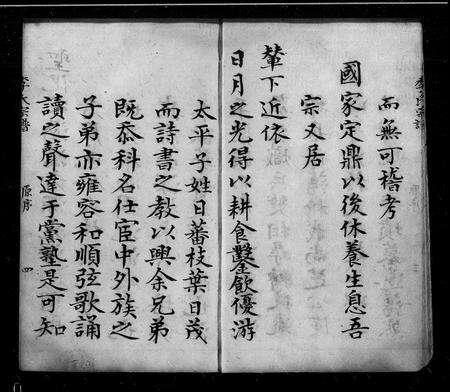 而無可稽考
國家定鼎以後休養生息吾
宗又居
輦下近依
日月之光得以耕食鑿飲優游
太平子姓日蕃枝葉日茂
而詩書之教以興余兄弟
既忝科名仕宦中外族之
子弟亦雍容和順弦歌誦
讀之聲達于黨塾是可知
李氏宗譜
原序
四